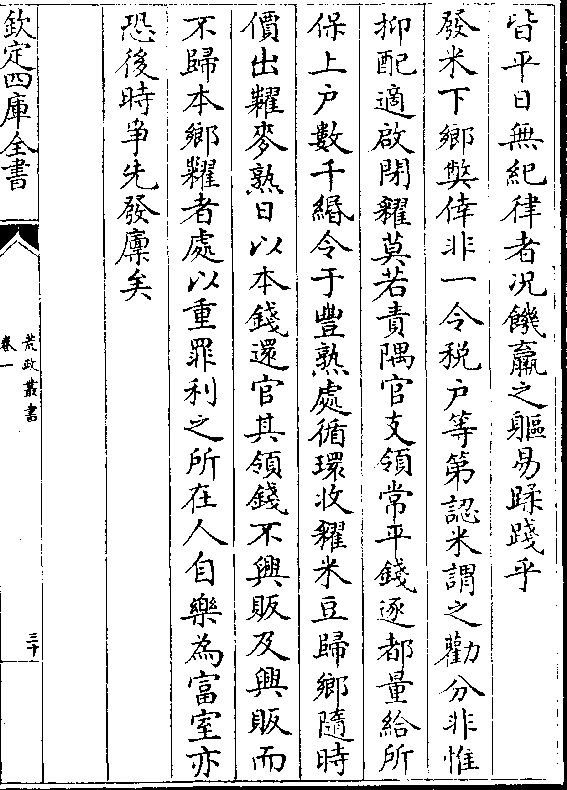 皆平日無紀律者况饑羸之軀易蹂踐乎
發米下鄉獘倖非一令税户等第認米謂之勸分非惟
抑配適啟閉糴莫若責隅官支領常平錢逐都量給所
保上户數千緡令于豐熟處循環收糴米豆歸鄉隨時
價出糶麥熟日以本錢還官其領錢不興販及興販而
不歸本鄉糶者處以重罪利之所在人自樂為富室亦
恐後時爭先發廩矣
欽定四庫全書
荒政叢書
卷一
三十